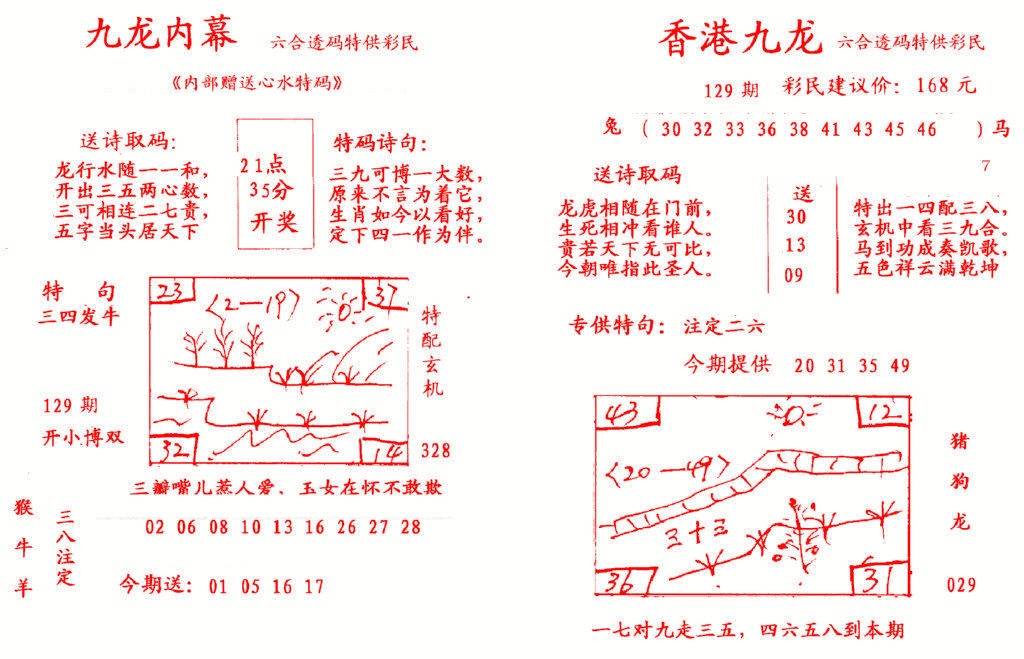 九龙内幕 六合透码特供彩民
《内部赠送心水特码》
送诗取码:
龙行水随一一和,
开出三五两心数,
三可相连二七贵,
五字当头居天下
21点
35分
开奖
特码诗句:
三九可博一大数,
原来不言为着它,
生肖如今以看好,
定下四一作为伴。
特 句
三四发牛
129 期
开小博双
23
37
〈2—19〉
32
14
特配玄机
328
三瓣嘴儿惹人爱、玉女在怀不敢欺
猴牛羊
三八注定
02 06 08 10 13 16 26 27 28
今期送: 01 05 16 17
香港九龙 六合透码特供彩民
129 期 彩民建议价: 168 元
兔 ( 30 32 33 36 38 41 43 45 46 ) 马
7
送诗取码
龙虎相随在门前,
生死相冲看谁人。
贵若天下无可比,
今朝唯指此圣人。
送
30
13
09
特出一四配三八,
玄机中看三九合。
马到功成奏凯歌,
五色祥云满乾坤
专供特句: 注定二六
今期提供 20 31 35 49
43
12
〈20—49〉
三十三
36
31
猪
狗
龙
029
一七对九走三五, 四六五八到本期